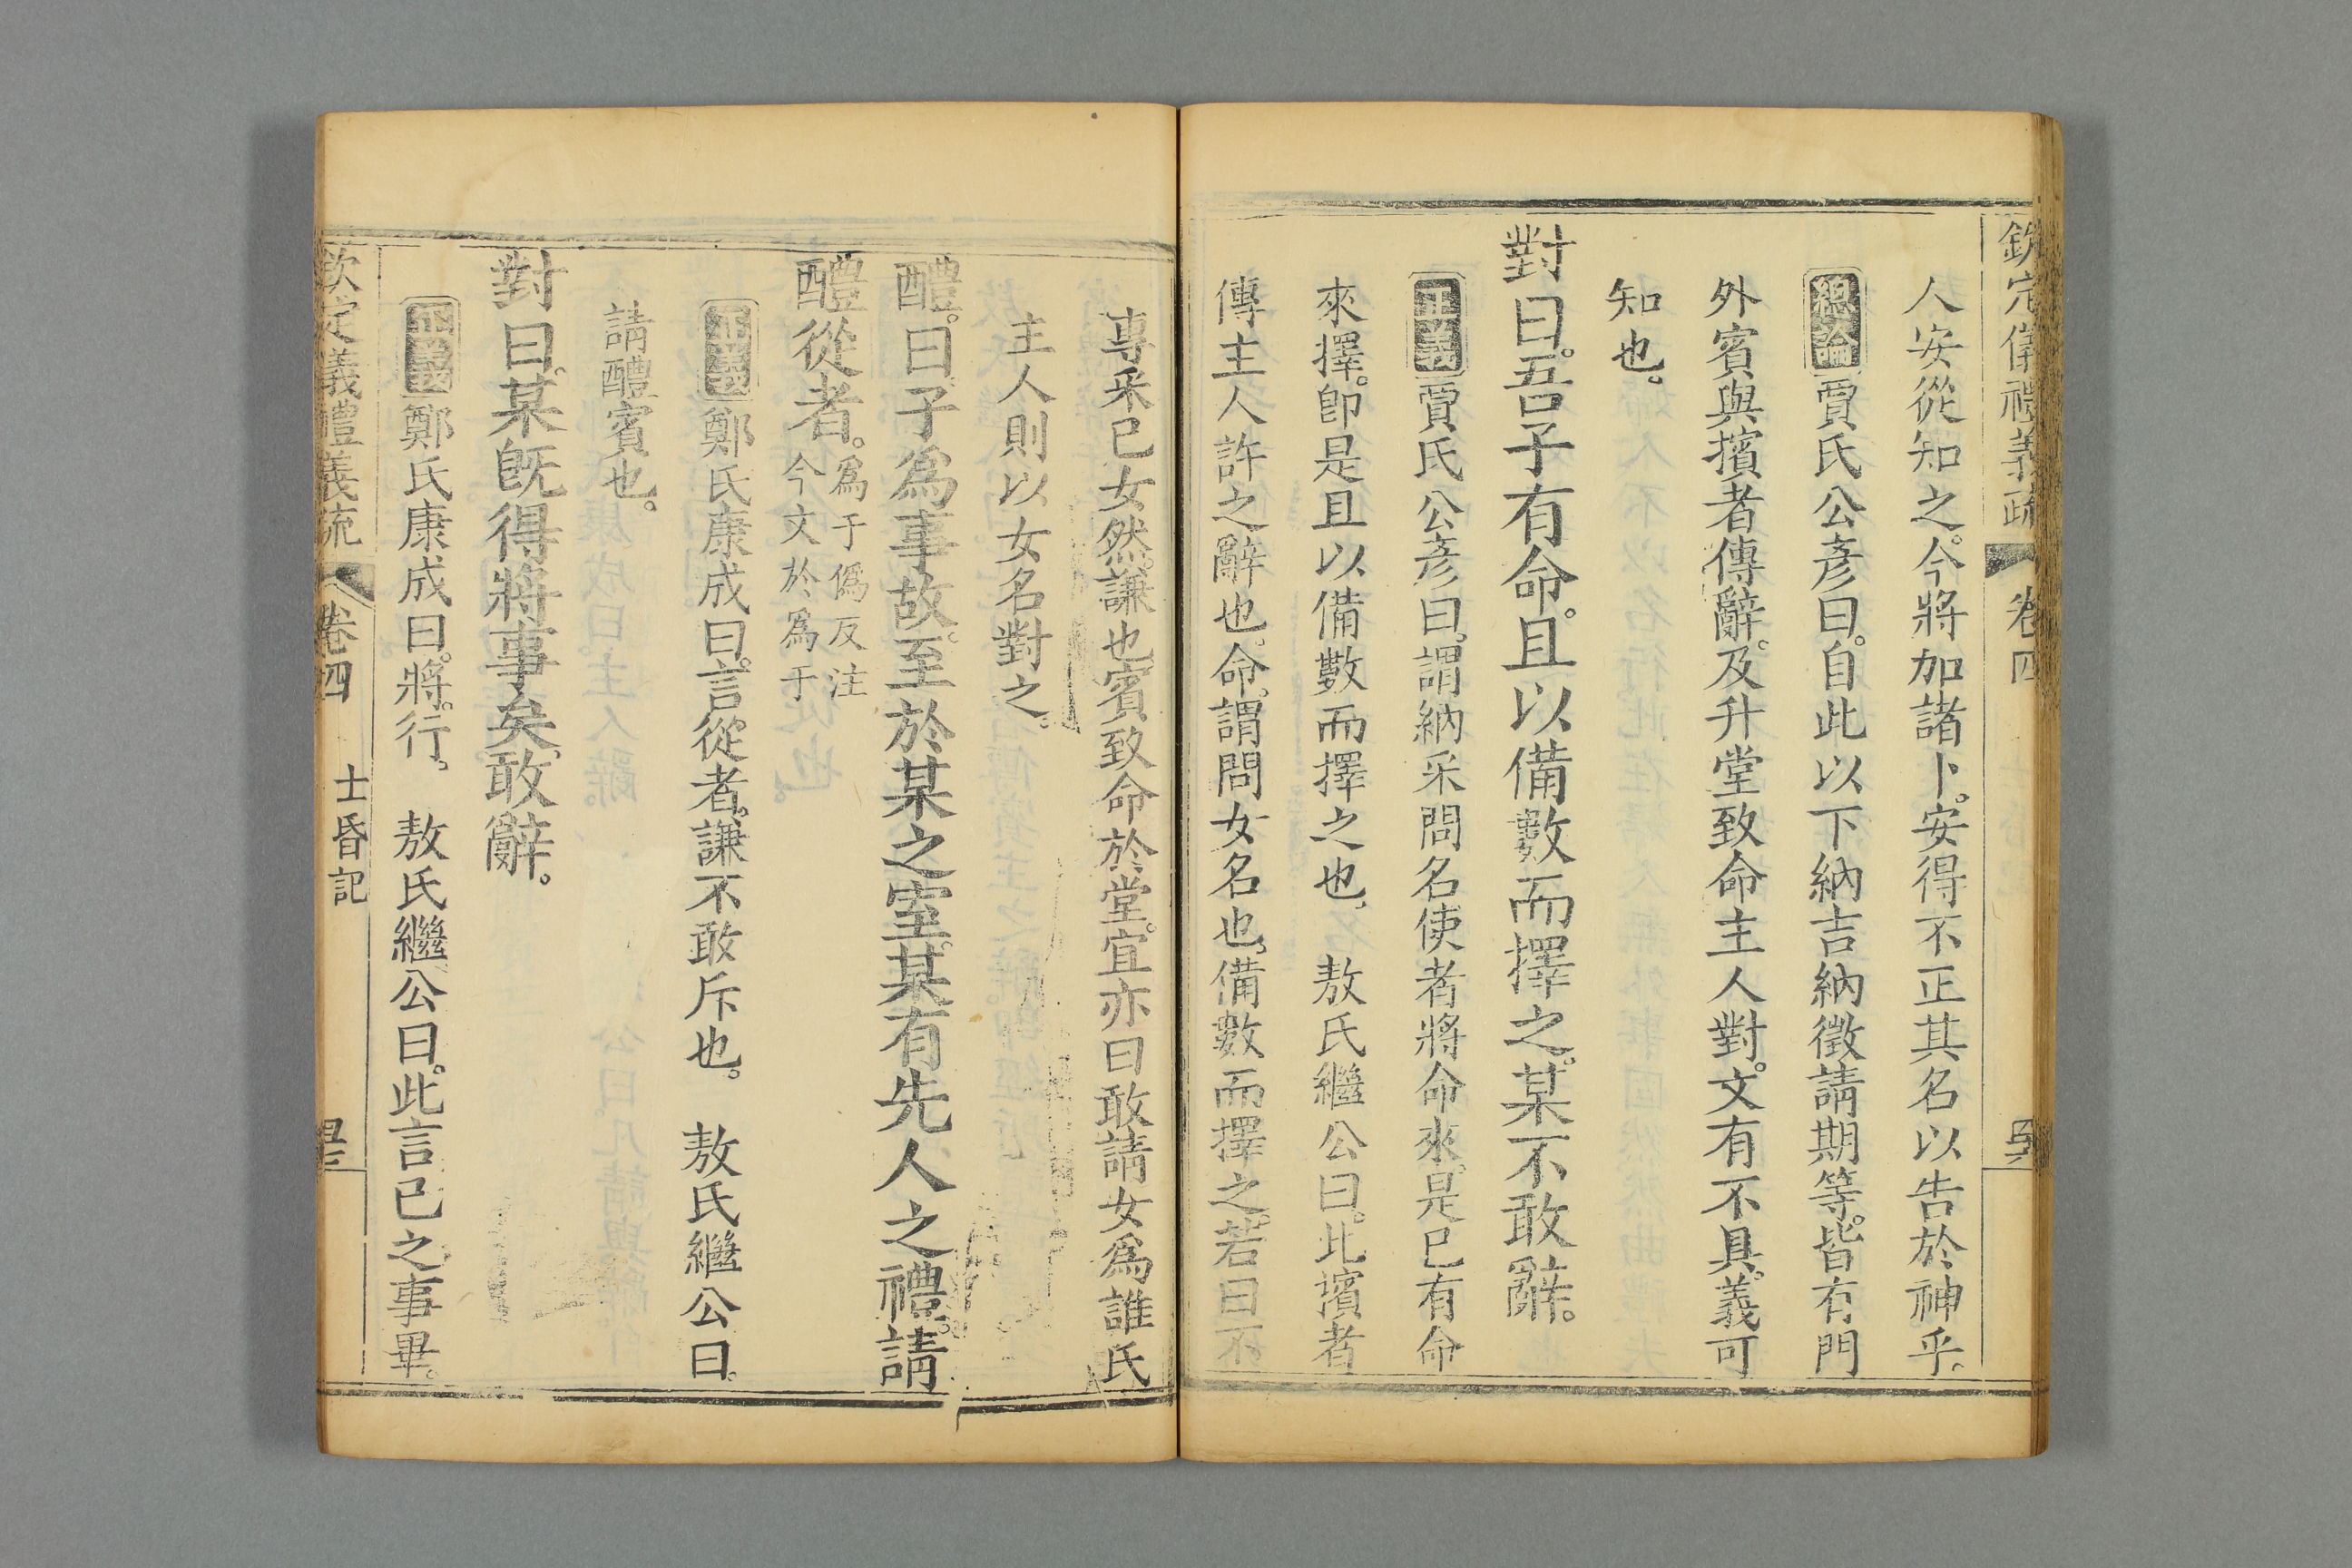 欽定儀禮義疏 卷四
人安從知之。今將加諸卜。安得不正其名以告於神乎。
總論 賈氏公彥曰。自此以下納吉納徵請期等。皆有門
外賓與擯者傳辭。及升堂致命主人對。文有不具。義可
知也。
對曰。吾子有命。且以備數而擇之。某不敢辭。
正義 賈氏公彥曰。謂納采問名。使者將命來。是已有命
來擇。卽是且以備數而擇之也。 敖氏繼公曰。此擯者
傳主人許之辭也。命。謂問女名也。備數而擇之。若曰不
專采已女然。謙也。賓致命於堂。宜亦曰敢請女爲誰氏
主人則以女名對之。
醴。曰子爲事故。至於某之室。某有先人之禮。請
醴從者。爲于僞反注
今文於爲于
正義 鄭氏康成曰。言從者。謙不敢斥也。 敖氏繼公曰。
請醴賓也。
對曰。某旣得將事矣。敢辭。
正義 鄭氏康成曰。將。行。 敖氏繼公曰。此言已之事畢。
欽定儀禮義疏 卷四 士昏記